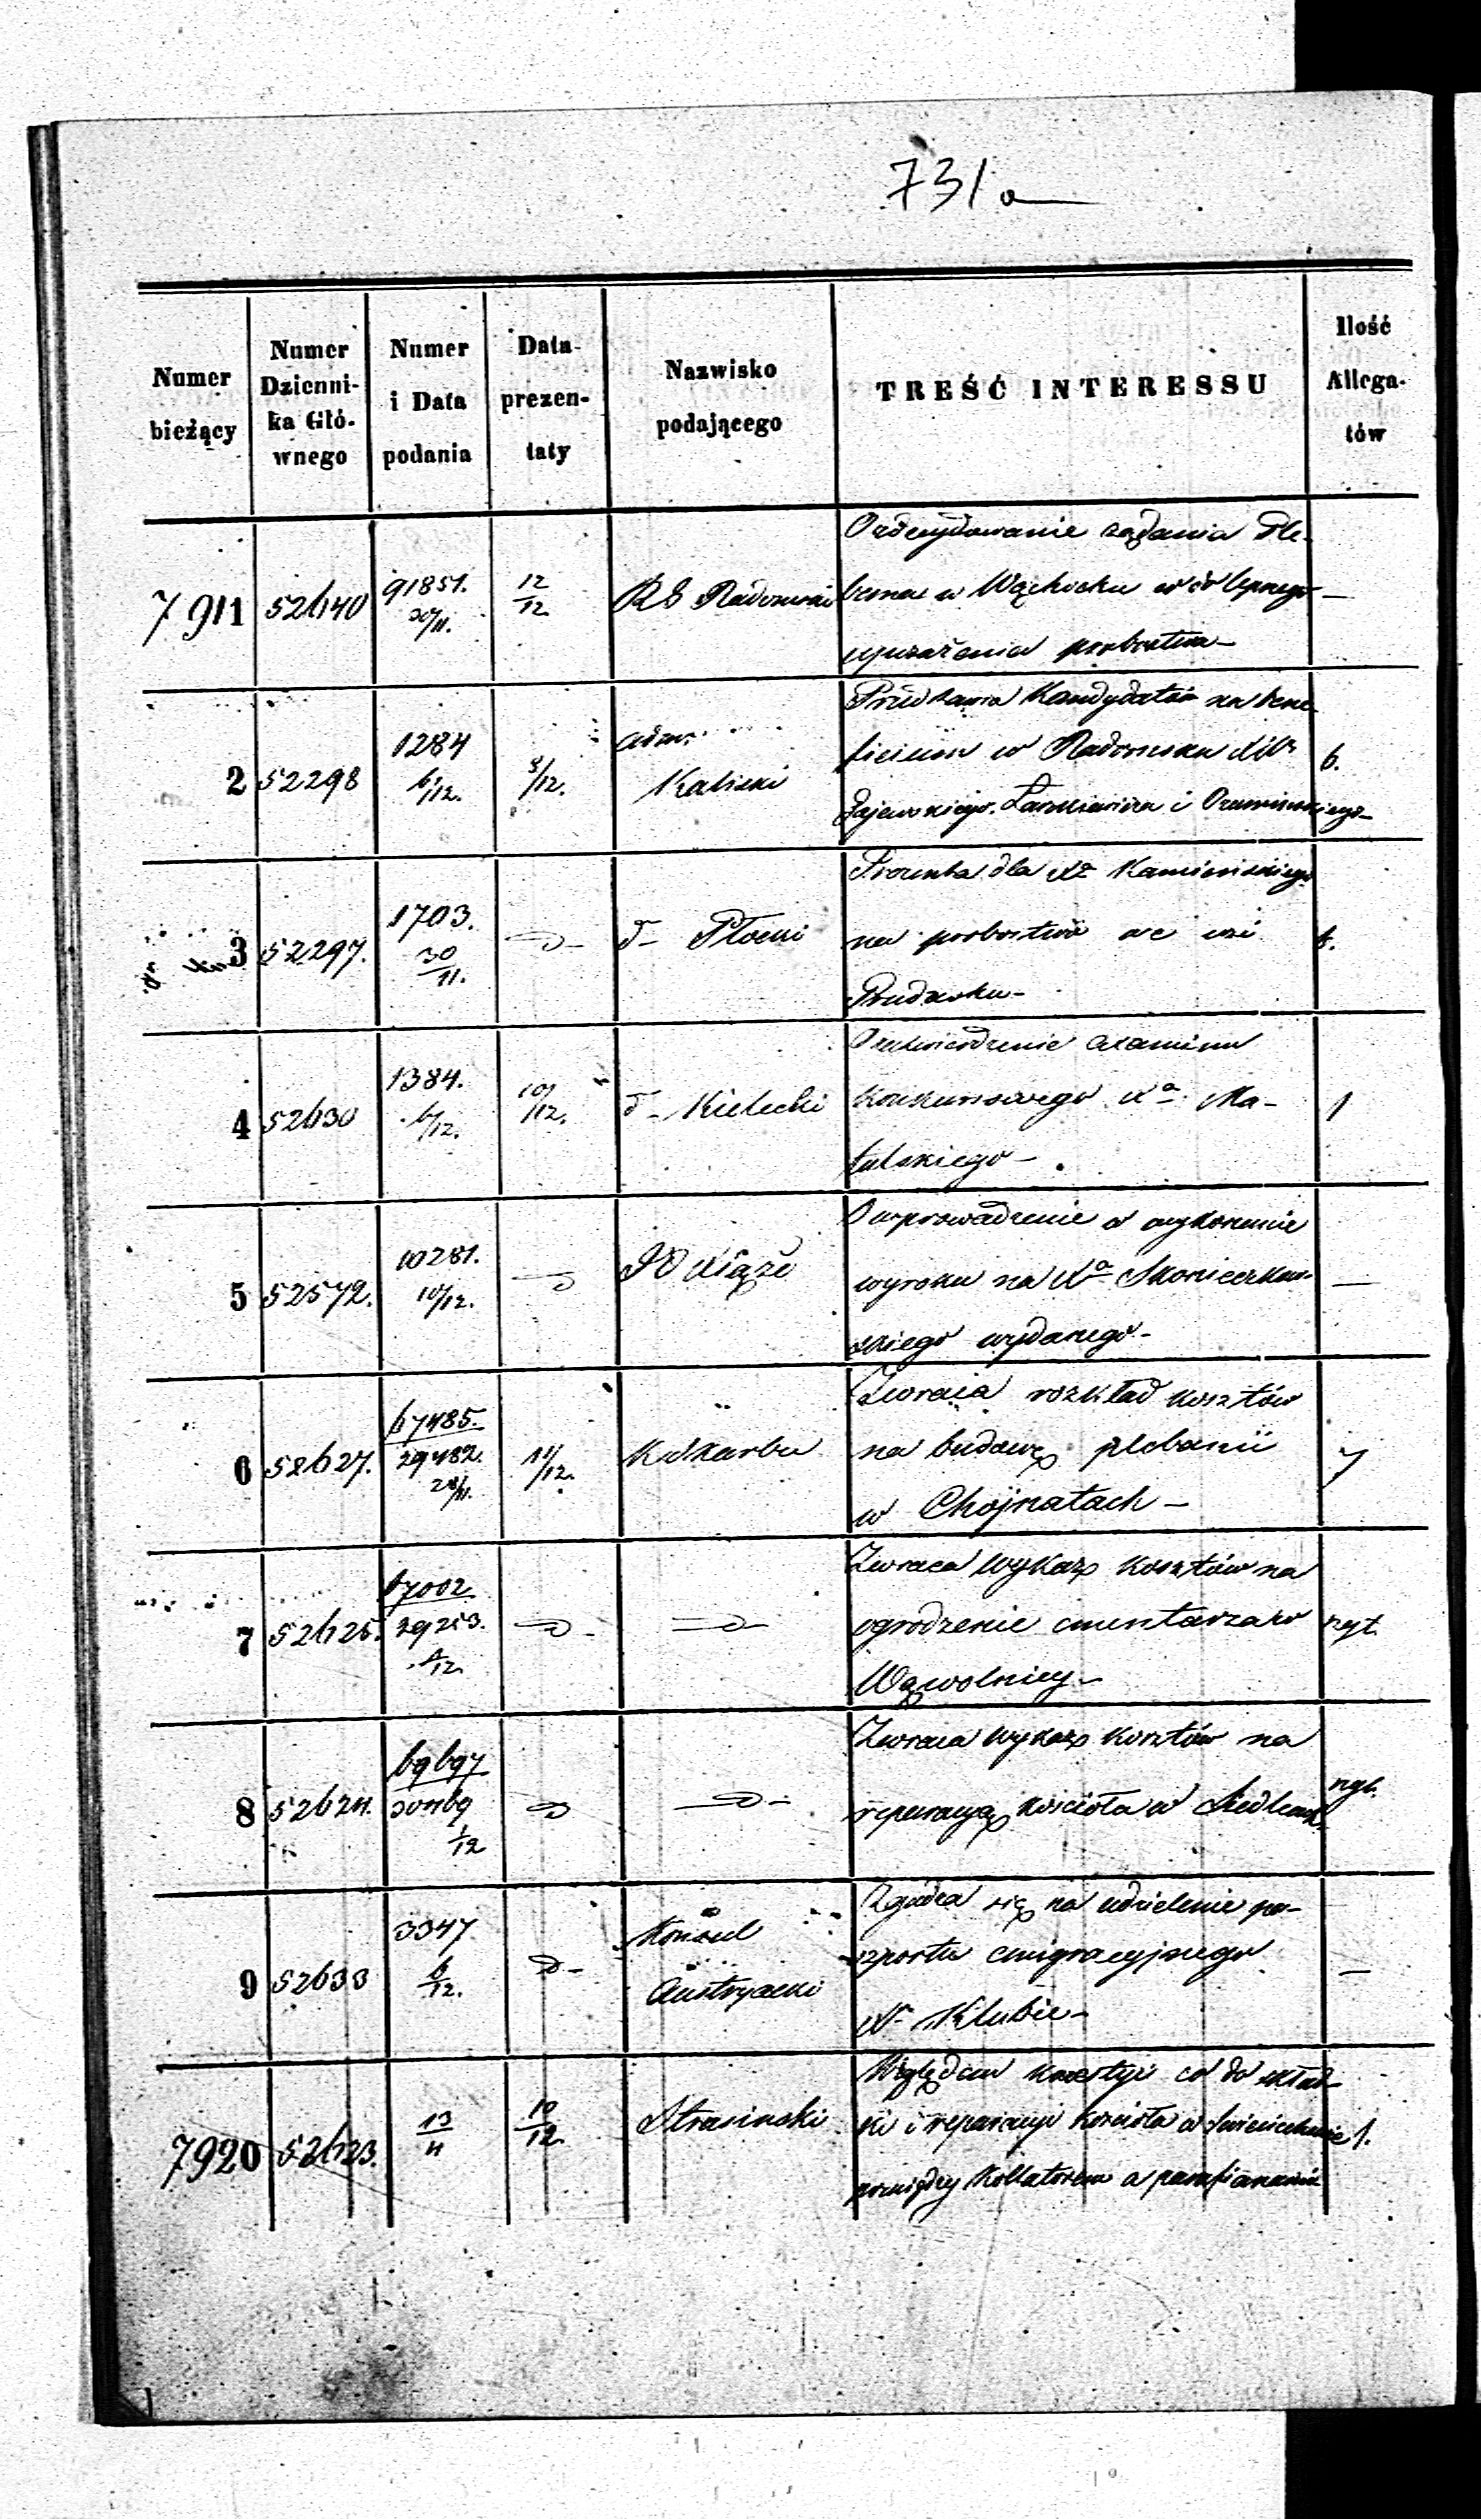 731a
Numer bieżący
Numer Dziennika Głównego
Numer i Data podania
Data prezentaty
Nazwisko podającego
TREŚĆ INTERESSU
Ilość Allegatów
7911 52640 91851. 12/12 RG Radomski
O zdecydowanie żądania Ple-
bana w Wąchocku w
uposażenia probostwa —
2 52298 1284 6/12. 8/12. Adm. Kaliski 6.
Przedstawia Kandydatów na bene
ficium w Radomsku
3 52297. 1703. 30/11. d- Płocki
Prezenta dla Xa Kamieńskiego
na probostwo we wsi
4 52630 1384. 6/12. 10/12. d- Kielecki 1
O zatwierdzenie examinu
Konkursowego Xa Ma-
tulskiego —
5 52572. 10281. 10/12. JO Xiąże —
O wprowadzenie w wykonanie
wyroku na Xa
skiego wydanego —
6 52627. 67485. 29482. 11/12. K Skarbu
Zwraca rozkład kosztów
na budowę plebanii
w Chojnatach —
7 52625. 67002 29253.
Zwraca wykaz kosztów na
ogrodzenie cmentarza w
Wąwolnicy —
8 52624. 69697 30469 1/12
Zwraca wykaz kosztów na
reperacyą kościoła w Siedlcach
9 52633 3347 6/12. Konsul Austryacki —
Zgadza się na udzielenie pa-
szportu emigracyjnego
Klubie —
7920 52623. 13/11 10/12. Strasinski 1.
Względem kwestyi co do skład-
ki i reparacyi kościoła w
pomiędzy Kollatorem a parafianami